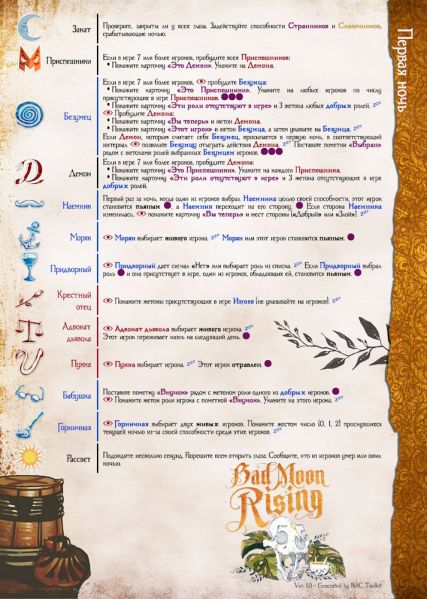 Первая ночь
Закат
Проверьте, закрыты ли у всех глаза. Задействуйте способности Странников и Сказочников,
срабатывающие ночью.
Приспешники
Если в игре 7 или более игроков, пробудите всех Приспешников:
• Покажите карточку «Это Демон». Укажите на Демона.
Безумец
Если в игре 7 или более игроков, пробудите Безумца:
• Покажите карточку «Это Приспешники». Укажите на любых игроков по числу
присутствующих в игре Приспешников.
• Покажите карточку «Эти роли отсутствуют в игре» и 3 жетона любых добрых ролей.
Пробудите Демона:
• Покажите карточку «Вы теперь» и жетон Демона.
• Покажите карточку «Этот игрок» и жетон Безумца, а затем укажите на Безумца.
Если Демон, который считает себя Безумцем, просыпается в первую ночь, в соответствующий
интервал позвольте Безумцу отыграть действия Демона. Поставьте пометки «Выбран»
рядом с жетонами ролей выбранных Безумцем игроков.
Демон
Если в игре 7 или более игроков, пробудите Демона:
• Покажите карточку «Это Приспешники». Укажите на каждого Приспешника.
• Покажите карточку «Эти роли отсутствуют в игре» и 3 жетона отсутствующих в игре
добрых ролей.
Наемник
Первый раз за ночь, когда один из игроков выбрал Наемника целью своей способности, этот игрок
становится пьяным, а Наемник переходит на его сторону. Если сторона Наемника
изменилась, покажите карточку «Вы теперь» и жест стороны («Добрый» или «Злой»).
Моряк
Моряк выбирает живого игрока. Моряк или этот игрок становится пьяным.
Придворный
Придворный дает сигнал «Нет» или выбирает роль из списка. Если Придворный выбрал
роль и она присутствует в игре, один из игроков, обладающих ей, становится пьяным.
Крестный
отец
Покажите жетоны присутствующих в игре Изгоев (не указывайте на игроков).
Адвокат
дьявола
Адвокат дьявола выбирает живого игрока.
Этот игрок переживет казнь на следующий день.
Пукка
Пукка выбирает игрока. Этот игрок отравлен.
Бабушка
Поставьте пометку «Внучок» рядом с жетоном роли одного из добрых игроков.
Покажите жетон роли игрока с пометкой «Внучок». Укажите на этого игрока.
Горничная
Горничная выбирает двух живых игроков. Покажите жестом число (0, 1, 2) проснувшихся
текущей ночью из-за своей способности среди этих игроков.
Рассвет
Подождите несколько секунд. Разрешите всем открыть глаза. Сообщите, кто из игроков умер или ожил
ночью.
Bad Moon
Rising
Ver. 1.0 - Generated by BotC Toolkit